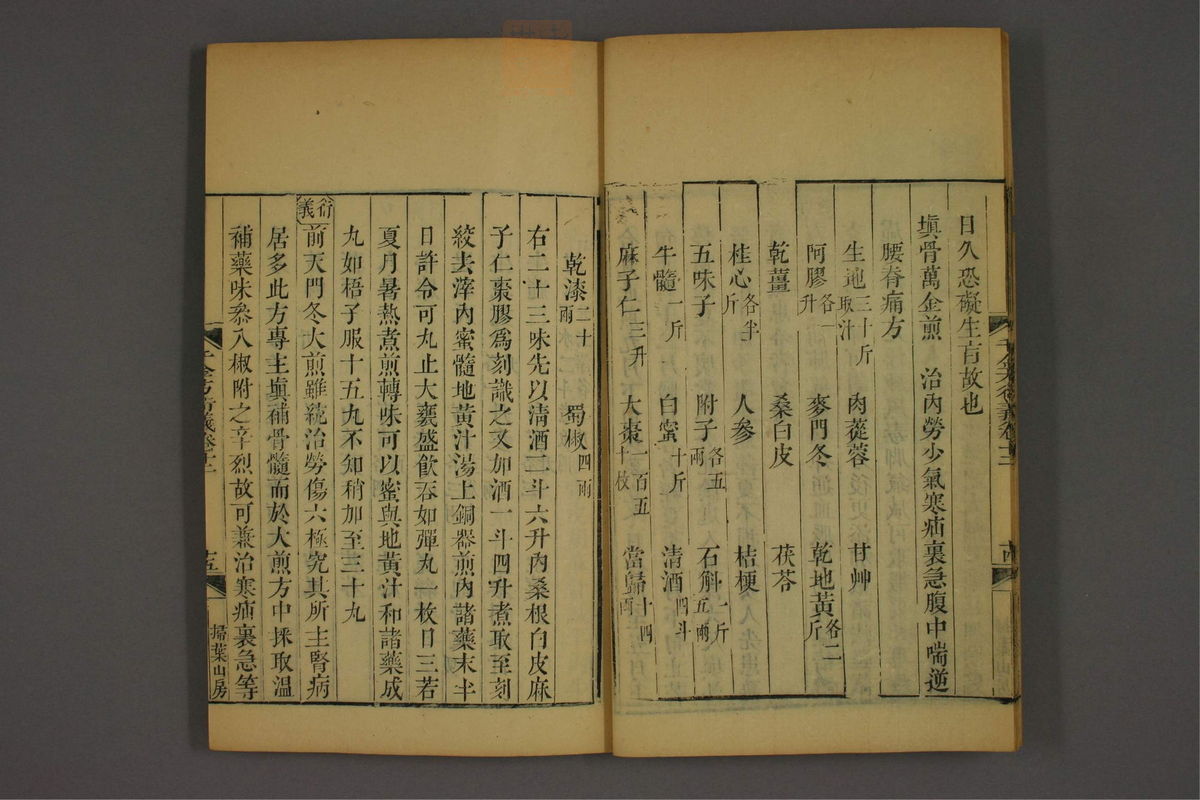 日久恐礙生育故也
填骨萬金煎 治內勞少氣寒疝裏急腹中喘逆
腰脊痛方
生地三十斤取汁 肉蓯蓉 甘艸
阿膠各一升 麥門冬 乾地黃各二斤
乾薑 桑白皮 茯苓
桂心各半斤 人參 桔梗
五味子 附子各五兩 石斛一斤五兩
牛髓一斤 白蜜十斤 清酒四斗
麻子仁三升 大棗一百五十枚 當歸十四兩
乾漆二十兩 蜀椒四兩
右二十三味先以清酒二斗六升內桑根白皮麻
子仁棗膠爲刻識之又加酒一斗四升煮取至刻
絞去滓內蜜髓地黃汁湯上銅器煎內諸藥末半
日許令可丸止大甕盛飲吞如彈丸一枚日三若
夏月暑熱煮煎轉味可以蜜與地黃汁和諸藥成
丸如梧子服十五丸不知稍加至三十丸
衍義 前天門冬大煎雖統治勞傷六極究其所主腎病
居多此方專主填補骨髓而於大煎方中採取溫
補藥味叅入椒附之辛烈故可兼治寒疝裏急等
千金方衍義卷十二
十五
掃葉山房